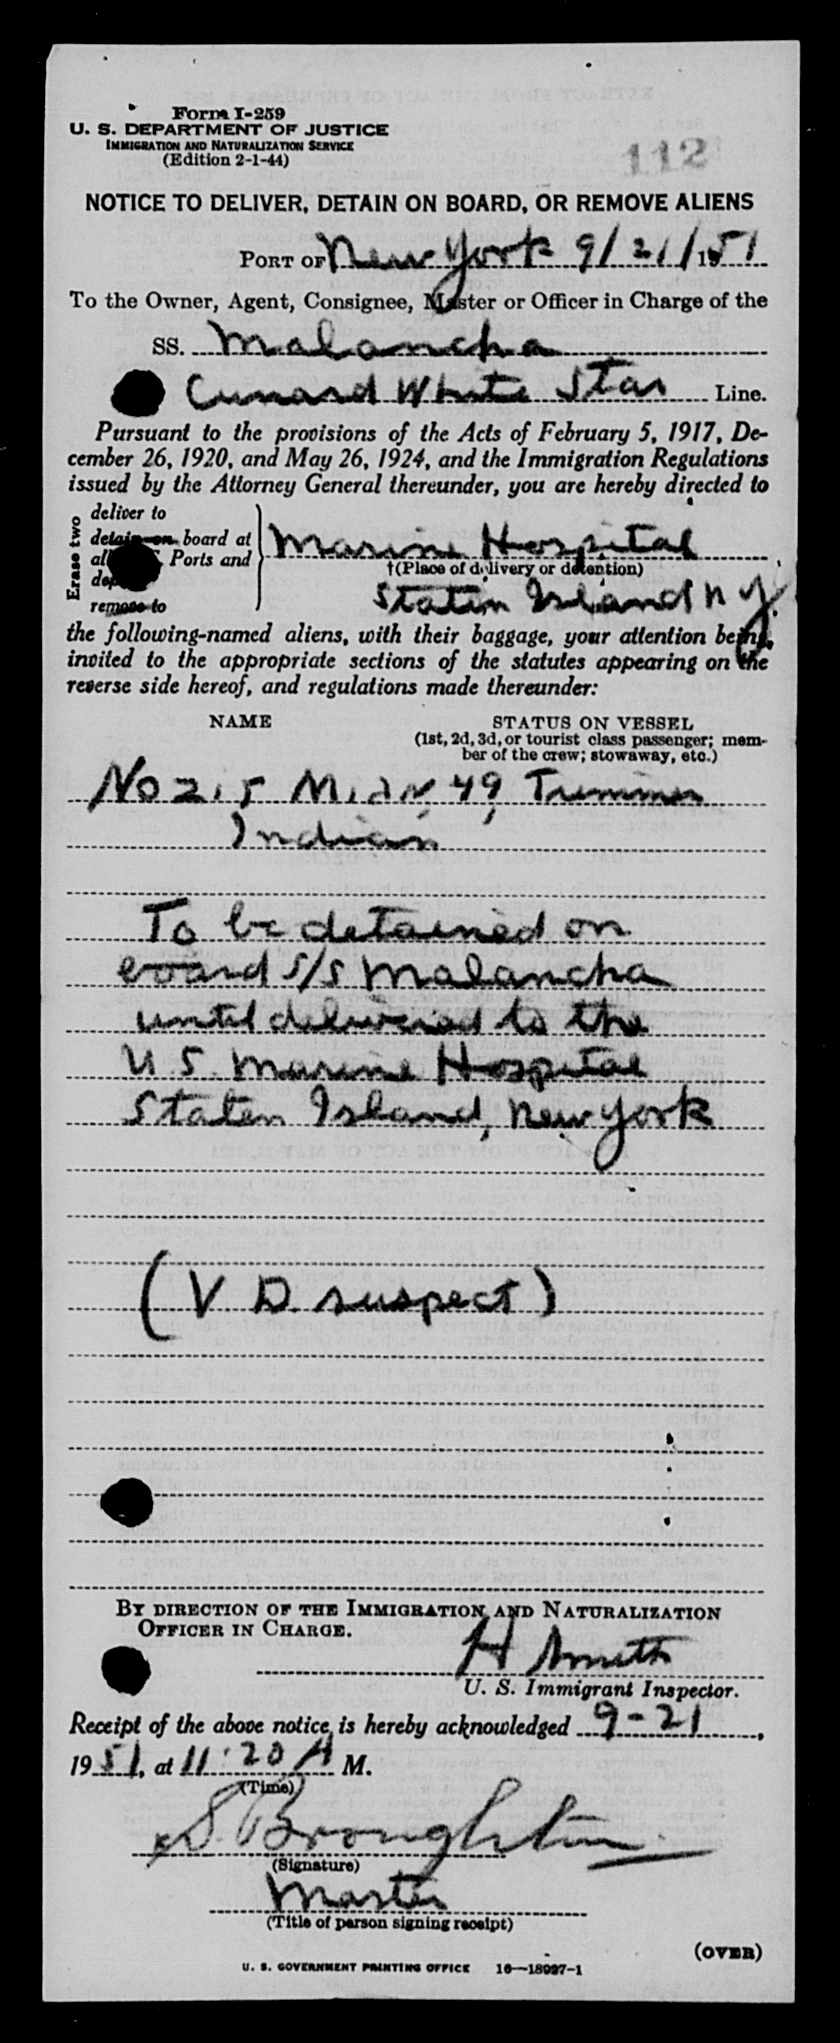 Form I-259
U. S. DEPARTMENT OF JUSTICE
IMMIGRATION AND NATURALIZATION SERVICE
(Edition 2-1-44)
112
NOTICE TO DELIVER, DETAIN ON BOARD, OR REMOVE ALIENS
PORT OF New York 9/21/1951
To the Owner, Agent, Consignee, Master or Officer in Charge of the
SS. Malancha
Cunard White Star Line.
Pursuant to the provisions of the Acts of February 5, 1917, De-
cember 26, 1920, and May 26, 1924, and the Immigration Regulations
issued by the Attorney General thereunder, you are hereby directed to
Erase two
deliver to
detain on board at
Ports and
remove to
Marine Hospital
†(Place of delivery or detention)
Staten Island N Y.
the following-named aliens, with their baggage, your attention being
invited to the appropriate sections of the statutes appearing on the
reverse side hereof, and regulations made thereunder:
NAME STATUS ON VESSEL
(1st, 2d, 3d, or tourist class passenger; mem-
ber of the crew; stowaway, etc.)
No 215 49 Trimmer
Indian
To be detained on
board S/S Malancha
until delivered to the
U S. Marine Hospital
Staten Island, New York
(V D. suspect)
BY DIRECTION OF THE IMMIGRATION AND NATURALIZATION
OFFICER IN CHARGE.
H Smith
U. S. Immigrant Inspector.
Receipt of the above notice is hereby acknowledged 9-21,
1951, at 11:20 A M.
(Time)
x S. Broughton
(Signature)
Master
(Title of person signing receipt)
(OVER)
U. S. GOVERNMENT PRINTING OFFICE 16—18997-1